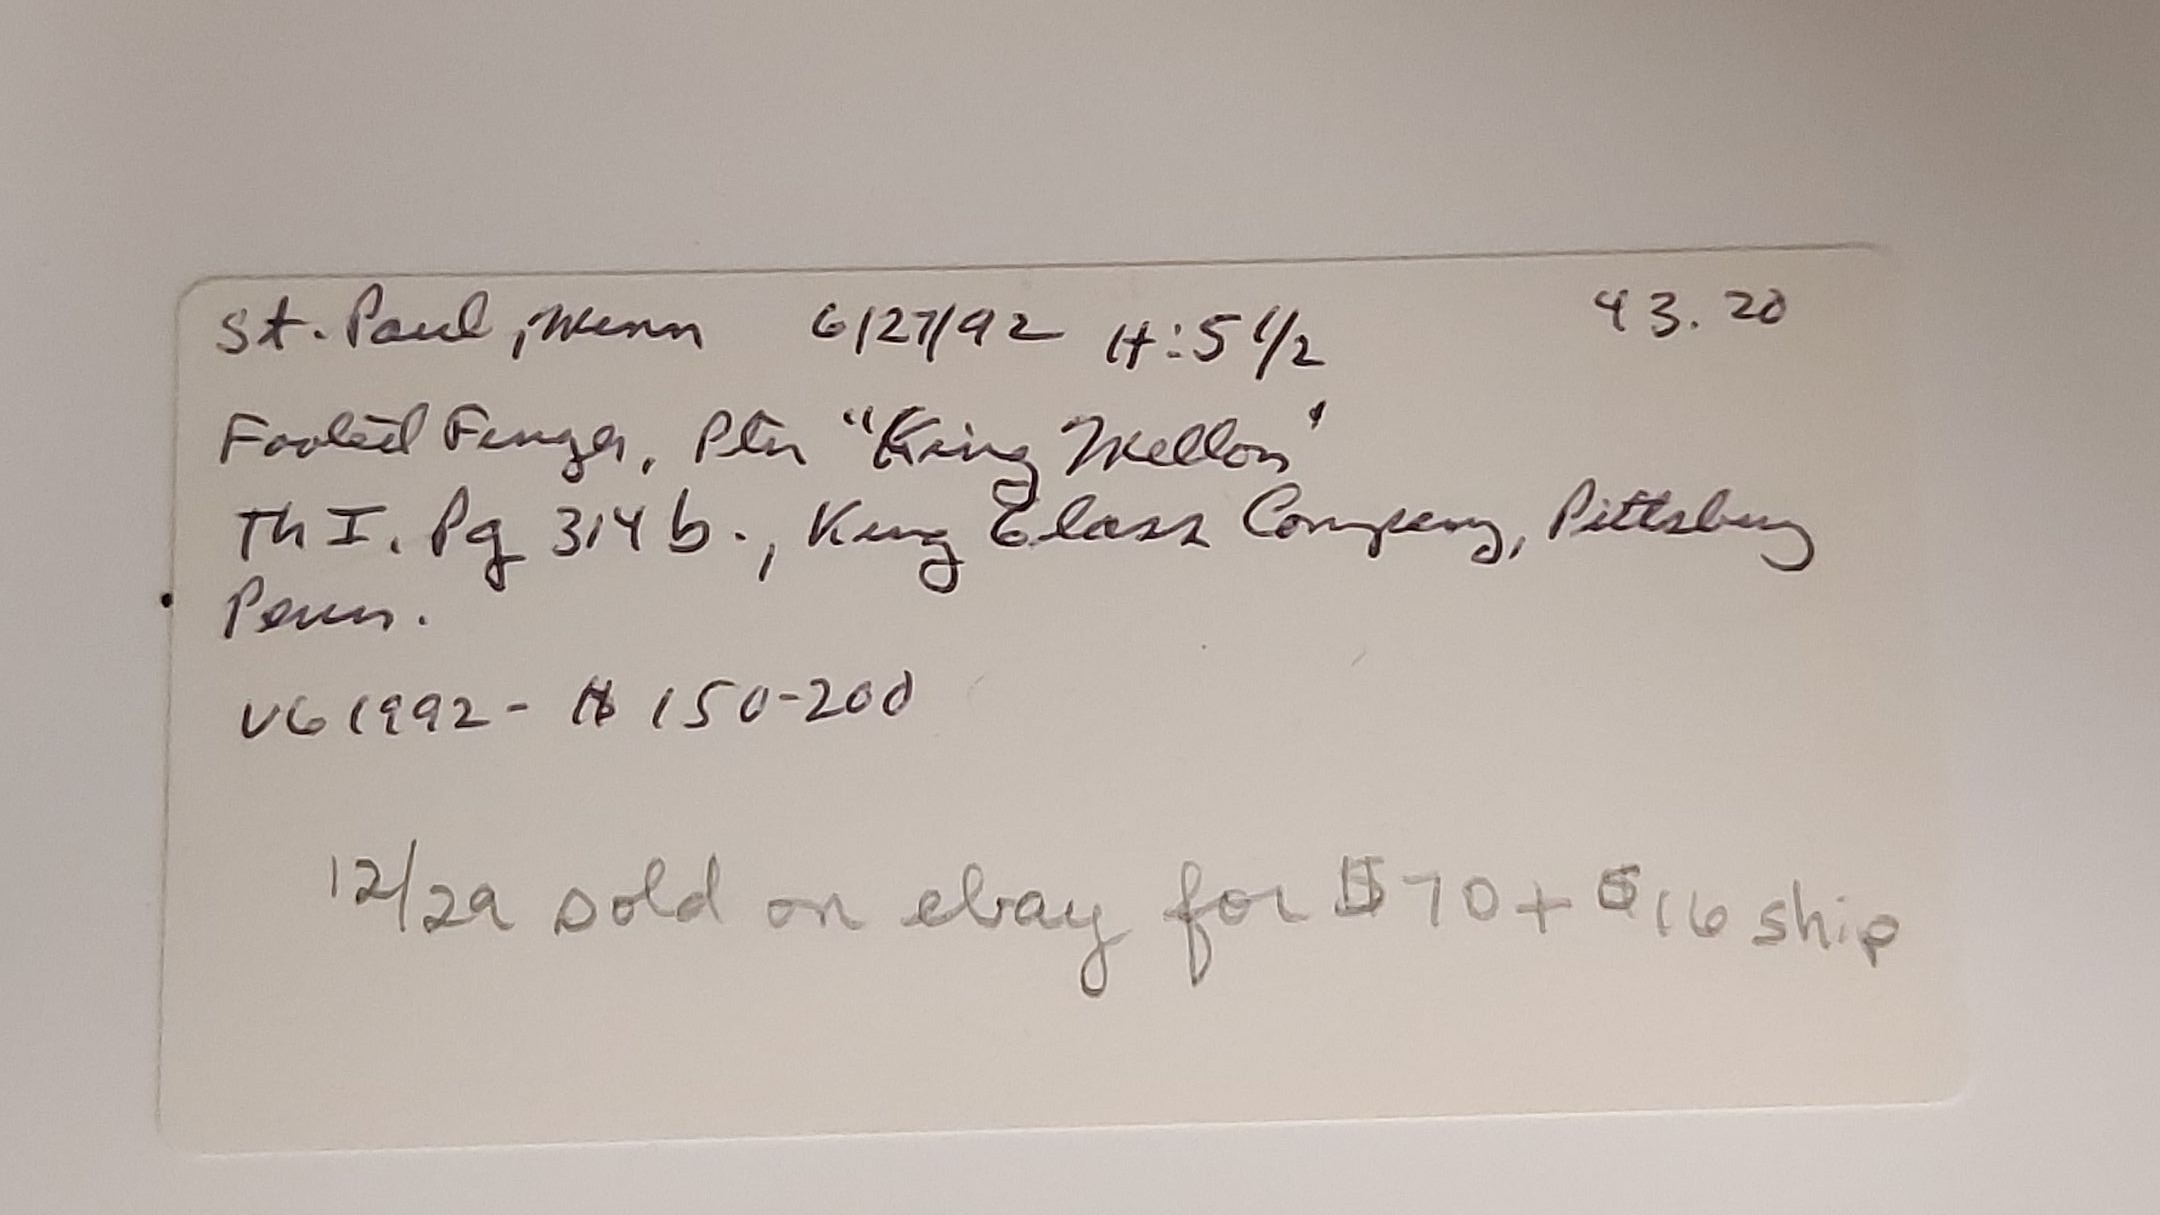 St. Paul, Minn 6/27/92 H: 5 1/2 43.20
Footed Finger, Ptn "King Mellon"
Th I. Pg 314 b., King Glass Company, Pittsburg
Penn.
VG 1992 - $150-200
12/29 sold on ebay for $70 + $16 ship